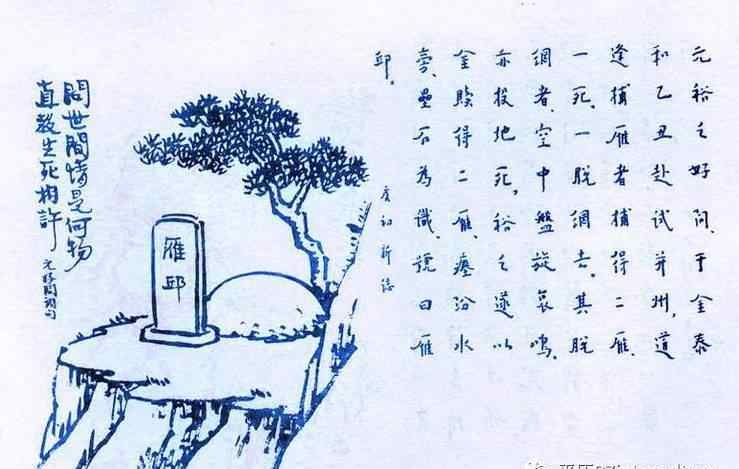 元裕之好問、于金泰
和乙丑赴試并州，道
逢捕雁者捕得二雁，
一死，一脫網去。其脫
網者，空中盤旋哀鳴，
亦投地死，裕之遂以
金贖得二雁，瘞汾水
旁，壘石為識，號曰雁
邱。
虞初新誌
雁邱
問世間情是何物
直教生死相許
元好問詞句